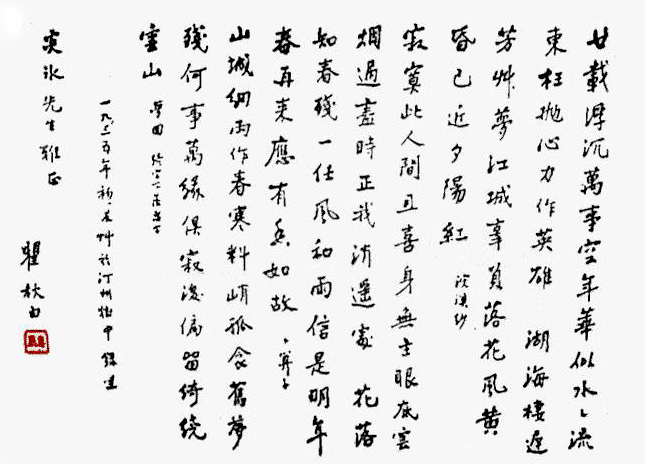 廿載浮沉萬事空年華似水〻流
東枉抛心力作英雄 湖海棲遲
芳艸夢江城辜負落花風黄
昏已近夕陽紅 浣溪紗
寂寞此人間且喜身無主眼底雲
烟過盡時正我逍遥處 花落
知春殘一任風和雨信是明年
春再來應有香如故 卜算子
山城細雨作春寒料峭孤衾舊夢
殘何事萬緣俱寂後偏留綺繞
雲山 夢回
一九三五年初 艸於汀州獄中 錄呈
炎冰先生雅正
瞿秋白